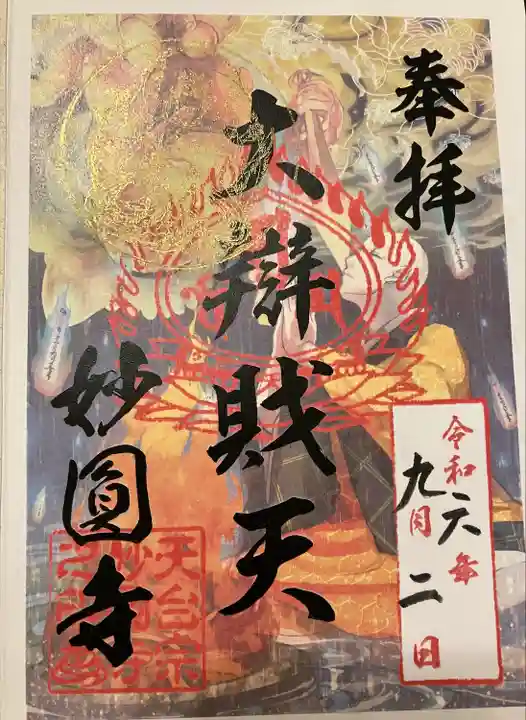 奉拝
大辯財天
妙圓寺
令和六年
九月二日
天台宗